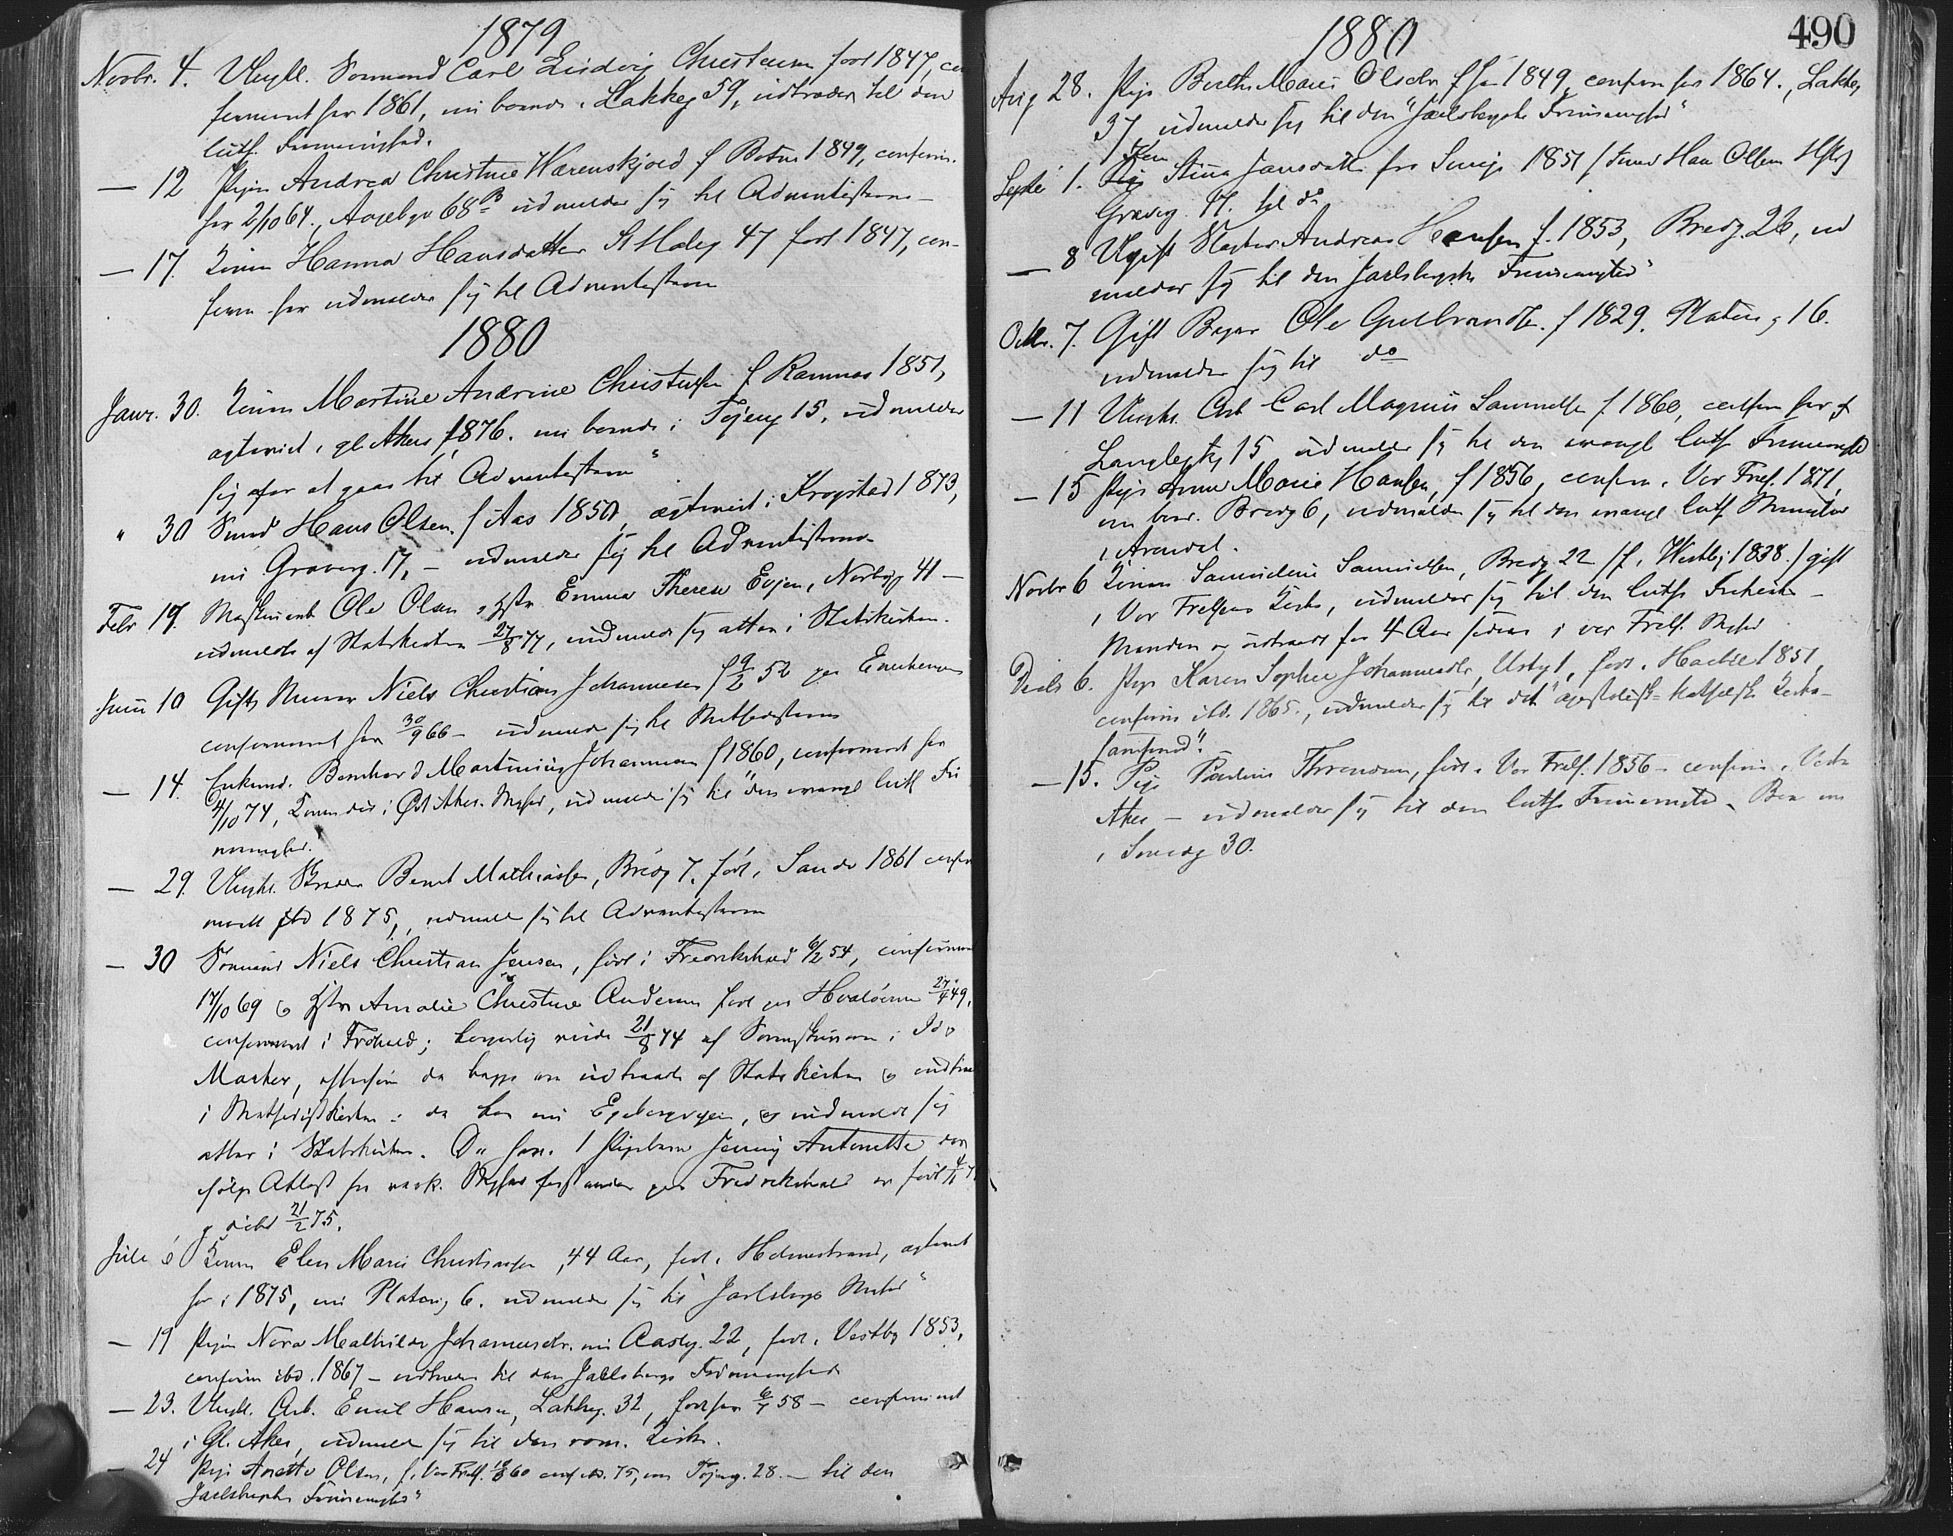 1879
Novbr. 4. Ungk. Sømand Carl Ludvig Christensen født 1847, con
firmeret her 1861, nu boende i Lakkeg 59, udtræder til den
luth. Frimenighed.
— 12 Pigen Andrea Christine Wærenskjold f Botne 1849, confirm.
her 2/10 64., Aagebgv 68 B udmelder sig til Adventisterne —
— 17. Konen Hanna Hansdatter St Halvg. 47 født 1847, con-
firm her udmelder sig til Adventisterne
1880
Janr. 30. Konen Martine Andrine Christensen f Ramnes 1851,
ægteviet i gl. Akers 1876. nu boende i Tøieng 15, udmelder
sig for at gaa til Adventisterne"
" 30 Smed Hans Olsen f Aas 1850, ægteviet i Krogstad 1873,
nu Grøverg. 17, — udmelder sig til Adventisterne
Febr 19. Maskinist Ole Olsen og Hstr. Emma Therese Evjen, Norbyg 41 —
udmeldt af Statskirken 27/8 77, indmelde sig atter i Statskirken.
Juni 10 Gifte Murer Niels Christian Johannesen f 9/2 52 paa Enerhaugen
confirmeret her 30/9 66 — udmelder sig til Methodisterne
— 14. Enkemd. Bernhard Martinius Johannesen f 1860, confirmeret her
4/10 74, Konen død i Øst. Aker. Mghed, udmelder sig til "den evangl luth Fri
menighed."
— 29. Ungk. Skrædder Bernt Mathiassen, Bredg 7, født i Sande 1861 confir
meret ibd 1875, udmelder sig til Adventisterne
— 30 Sømand Niels Christian Jensen, født i Fredrikshald 6/2 54, confirmeret
17/10 69 og Hstr Amalie Christine Andersen født paa Hvaløerne 27/4 49,
confirmeret i Frdhald; borgerlig viede 21/8 74 af Sorenskriveren i Id og
Marker, efterat de begge var udtraadt af Statskirken og indtraadt
i Methodistkirken: de bor nu Egebergveien, og indmelder sig
atter i Statskirken. De have 1 Pigebarn Jenny Antonette der
ifølge Attest fra Methodist Menighedsforstander paa Fredrikshald er født 4/1 7
og døbt 21/2 75.
Juli 6 Konen Elen Marie Christiansen, 44 Aar, født i Holmestrand, ægteviet
her i 1875, nu Platoug 6. udmelder sig til "Jarlsbergs Mghed"
— 19 Pigen Nora Mathilde Johannesdtr. nu Aaslg. 22, født i Vestby 1853,
confirm ibd. 1867 — udtræder til den Jarlsbergs Frimenighed
— 23. Ungk. Arb. Emil Hansen, Lakkeg. 32, født her 6/7 58 — confirmeret
i Gl. Aker, udmelder sig til den rom. Kirke.
— 24 Pige Anette Olsen, f. i Vor Frels. 60 conf ibd. 75, nu Tøieng. 28. — til den
Jarlsbergske Frimenighed"
490
1880
Aug 28. Pige Berthe Marie Olsdtr f her 1849 confirm her 1864., Lakkeg
37, udmelder sig til den "Jarlsbergske Frimenighed"
Septbr 1. Kone Stina Jansdatter fra Sverige 1851 (Smed Hans Olsens Hstr)
Grøverg. 17. til do
— 8 Ugift Slagter Andreas Hansen f. 1853, Bredg. 26, ud
melder sig til den Jarlsbergske Frimenighed"
Octbr. 7. Gift Bager Ole Gulbrandsen f 1829. Platoug 16.
udmelder sig til do
— 11 Ungk. Arb Carl Magnus Samuelsen f 1860, confirm her,
Langlegtg 15, udmelder sig til den evangl luth Frimenighed
— 15 Pige Anne Marie Hansen, f 1856, confirm. i Vor Frels. 1871,
nu boer. Bredg 6, udmelder sig til den evangl luth Menighed
i Arendal.
Novbr 6 Konen Samueline Samuelsen, Bredg. 22 (f. i Vestby 1838.) gift
i Vor Frelsers Kirke, udmelder sig til den luthe Frikirke —
Manden er udtraadt for 4 Aar siden i vor Frels. Mghed
Decbr 6. Pige Karen Sophie Johannesdtr, Urtg 1, født i Hachee 1851,
confirm ibd. 1865., udmelder sig til det "apostolisk-katholske Kirke-
samfund".
— 15. Pige Pauline Thrønsen, født i Vor Frels. 1856 — confirm. i Vestre
Aker — udmelder sig til den luthe Frimenighed. Boer nu
i Smedg 30.